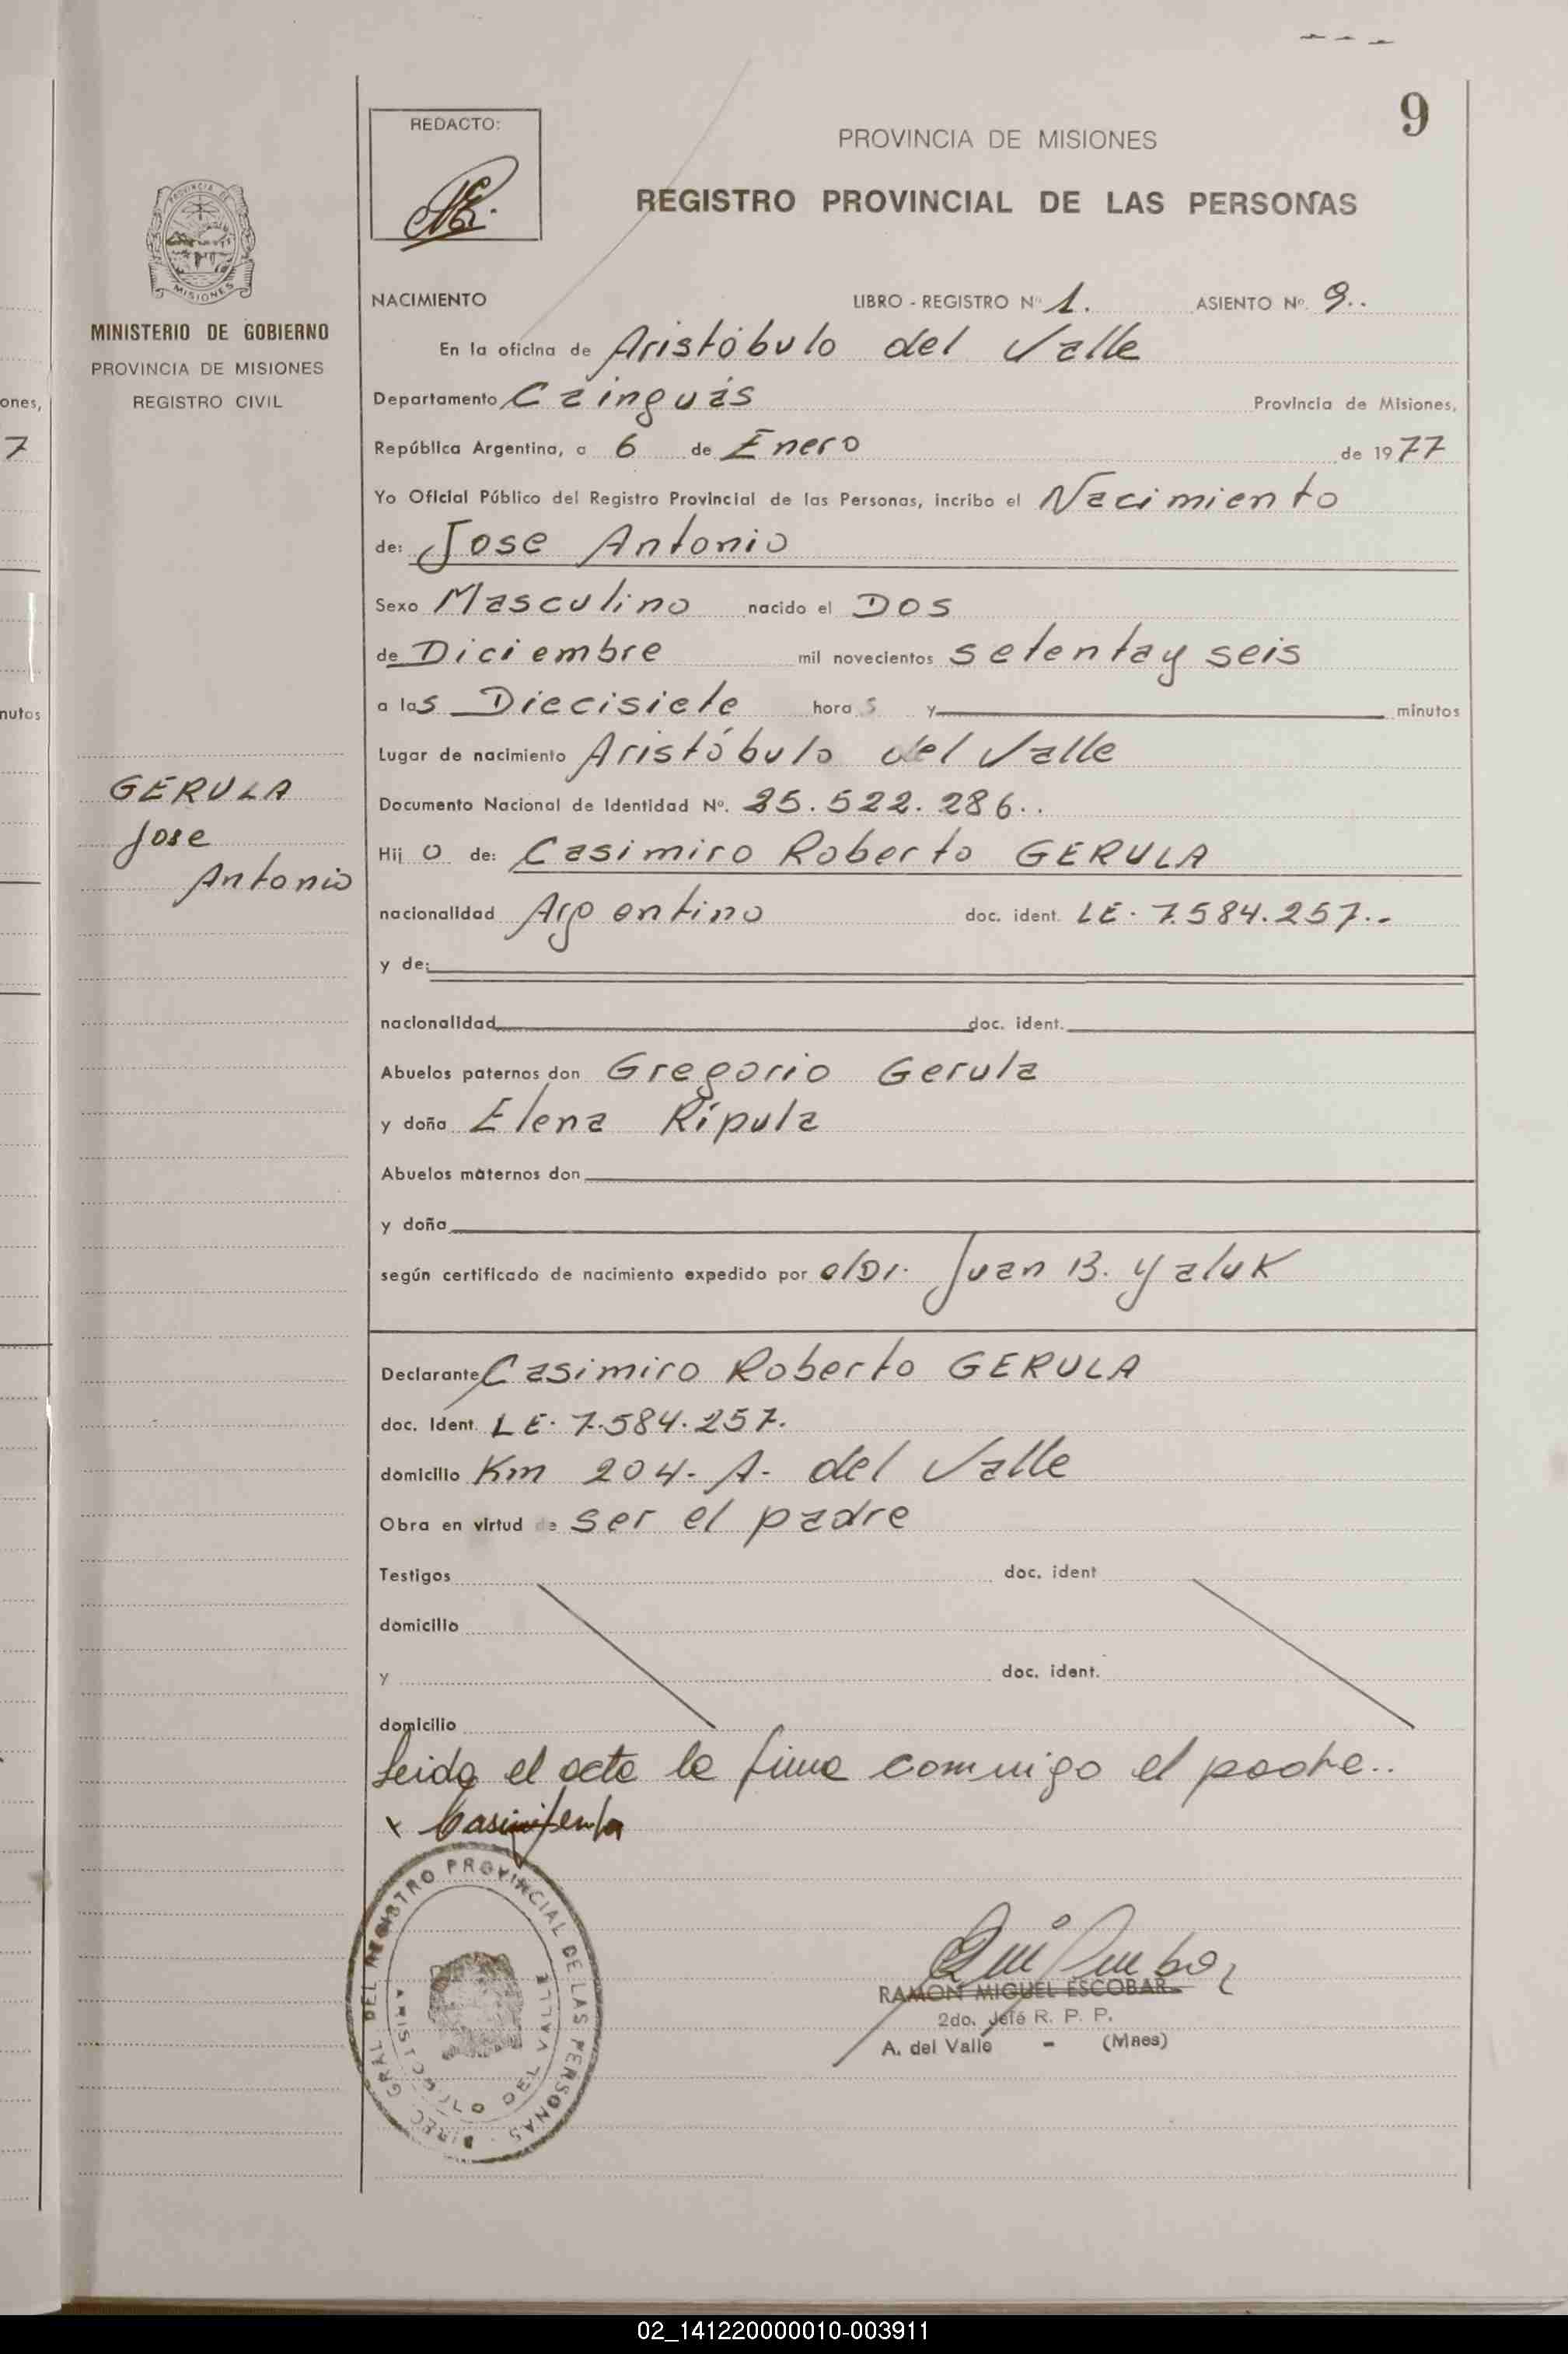 9
REDACTO:
PROVINCIA DE MISIONES
REGISTRO PROVINCIAL DE LAS PERSONAS
PROVINCIA DE
MISIONES
MINISTERIO DE GOBIERNO
PROVINCIA DE MISIONES
REGISTRO CIVIL
ones,
7
nutos
GERULA
Jose
Antonio
NACIMIENTO LIBRO - REGISTRO Nº 1. ASIENTO Nº. 9..
En la oficina de Aristóbulo del Valle
Departamento Cainguás Provincia de Misiones,
República Argentina, a 6 de Enero de 1977
Yo Oficial Público del Registro Provincial de las Personas, incribo el Nacimiento
de: Jose Antonio
Sexo Masculino nacido el Dos
de Diciembre mil novecientos setenta y seis
a las Diecisiete horas y minutos
Lugar de nacimiento Aristóbulo del Valle
Documento Nacional de Identidad Nº. 25.522.286..
Hijo de: Casimiro Roberto GERULA
nacionalidad Argentino doc. ident. LE. 7.584.257..
y de:
nacionalidad doc. ident.
Abuelos paternos don Gregorio Gerula
y doña Elena Ripula
Abuelos maternos don
y doña
según certificado de nacimiento expedido por el Dr. Juan B. Yaluk
Declarante Casimiro Roberto GERULA
doc. Ident. LE. 7.584.257.
domicilio Km 204- A- del Valle
Obra en virtud de ser el padre
Testigos doc. ident
domicilio
y doc. ident.
domicilio
Leida el acta la firma conmigo el padre..
x
DIREC. GRAL DEL REGISTRO PROVINCIAL DE LAS PERSONAS
ARISTOBULO DEL VALLE
RAMON MIGUEL ESCOBAR
2do. Jefé R. P. P.
A. del Valle - (Mnes)
02_141220000010-003911